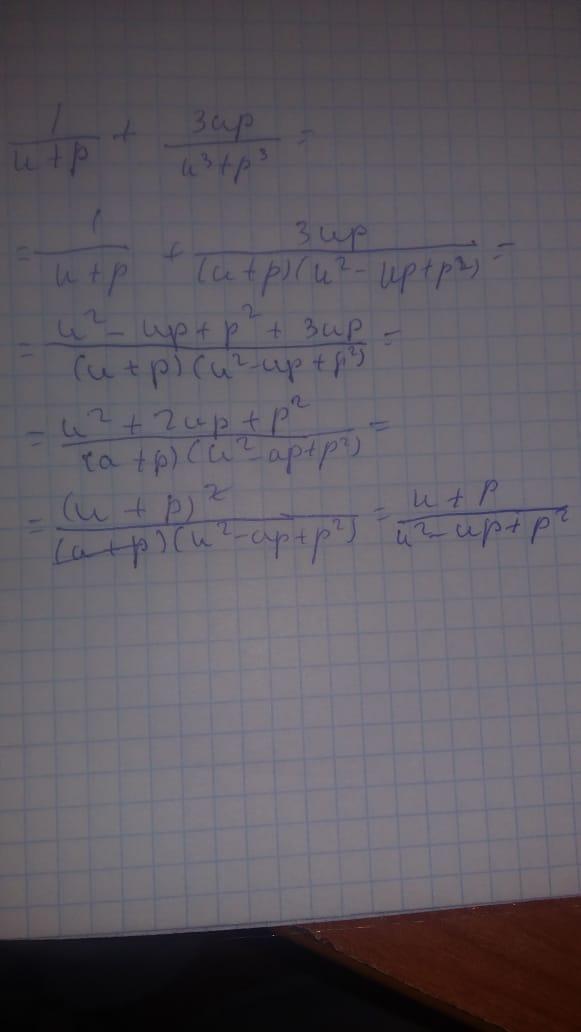 1/(u+p) + 3up/(u³+p³) =
= 1/(u+p) + 3up/((u+p)(u²-up+p²)) =
= (u²-up+p²+3up)/((u+p)(u²-up+p²)) =
= (u²+2up+p²)/((a+p)(u²-ap+p²)) =
= (u+p)²/((a+p)(u²-ap+p²)) = (u+p)/(u²-up+p²)